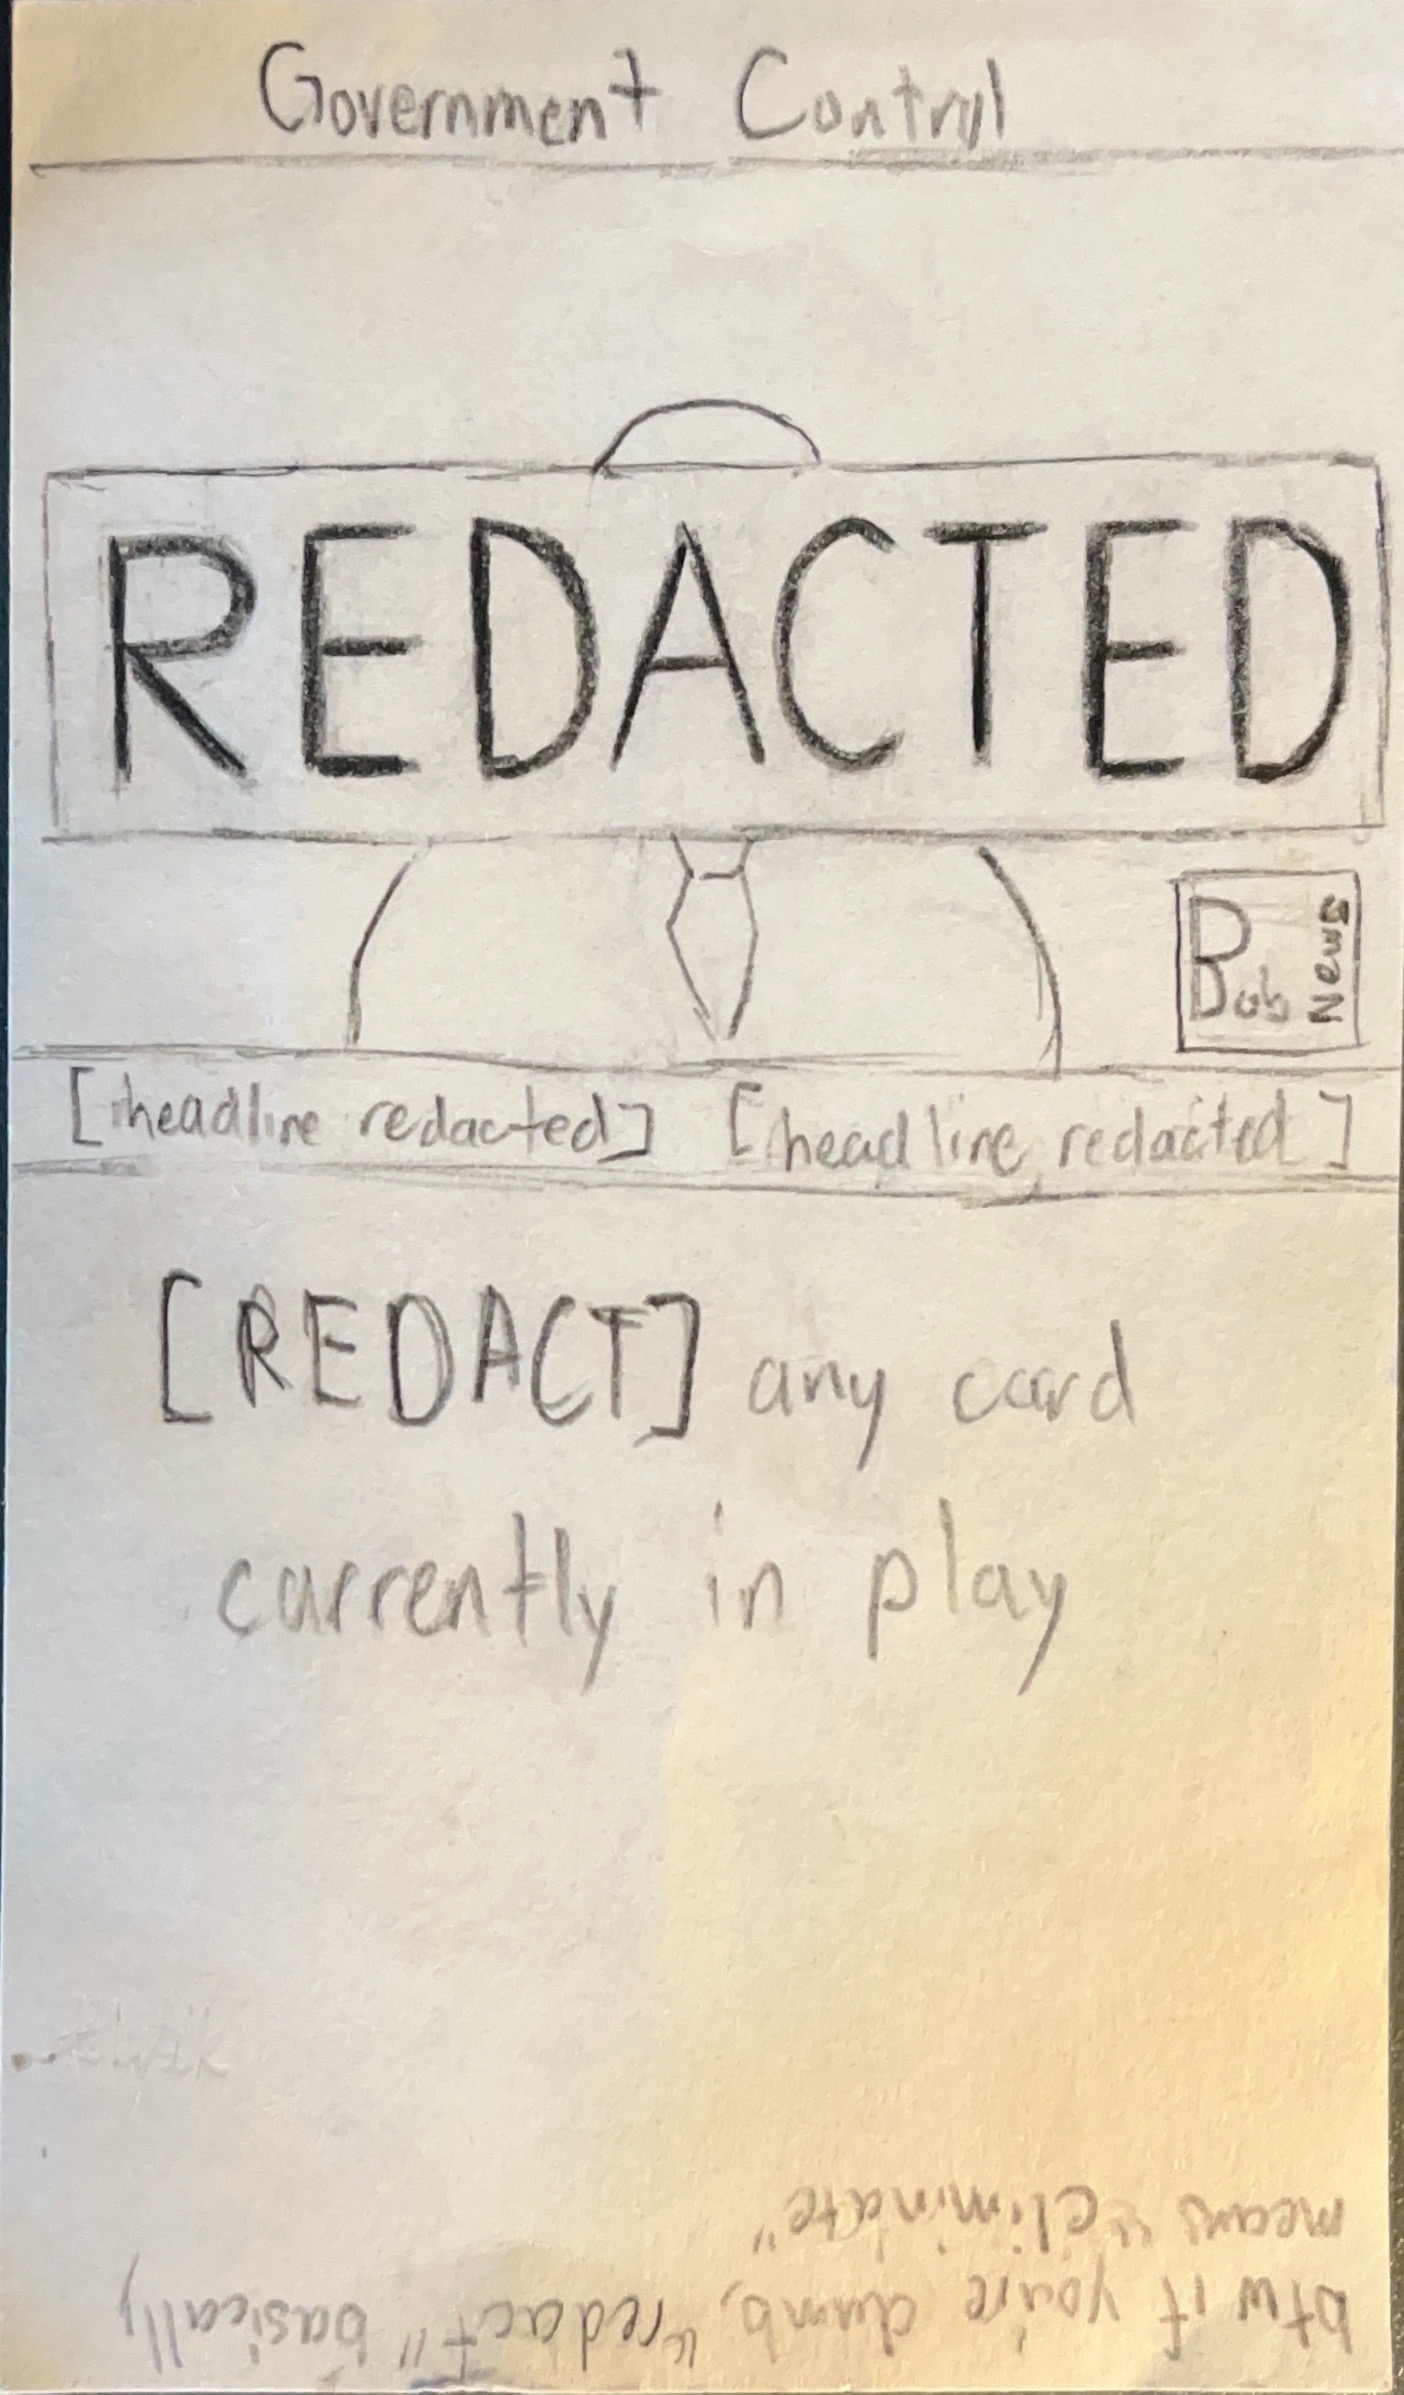 Government Control
REDACTED
Bob
News
[headline redacted] [headline redacted]
[REDACT] any card
currently in play
btw if you're dumb, "redact" basically
means "eliminate"